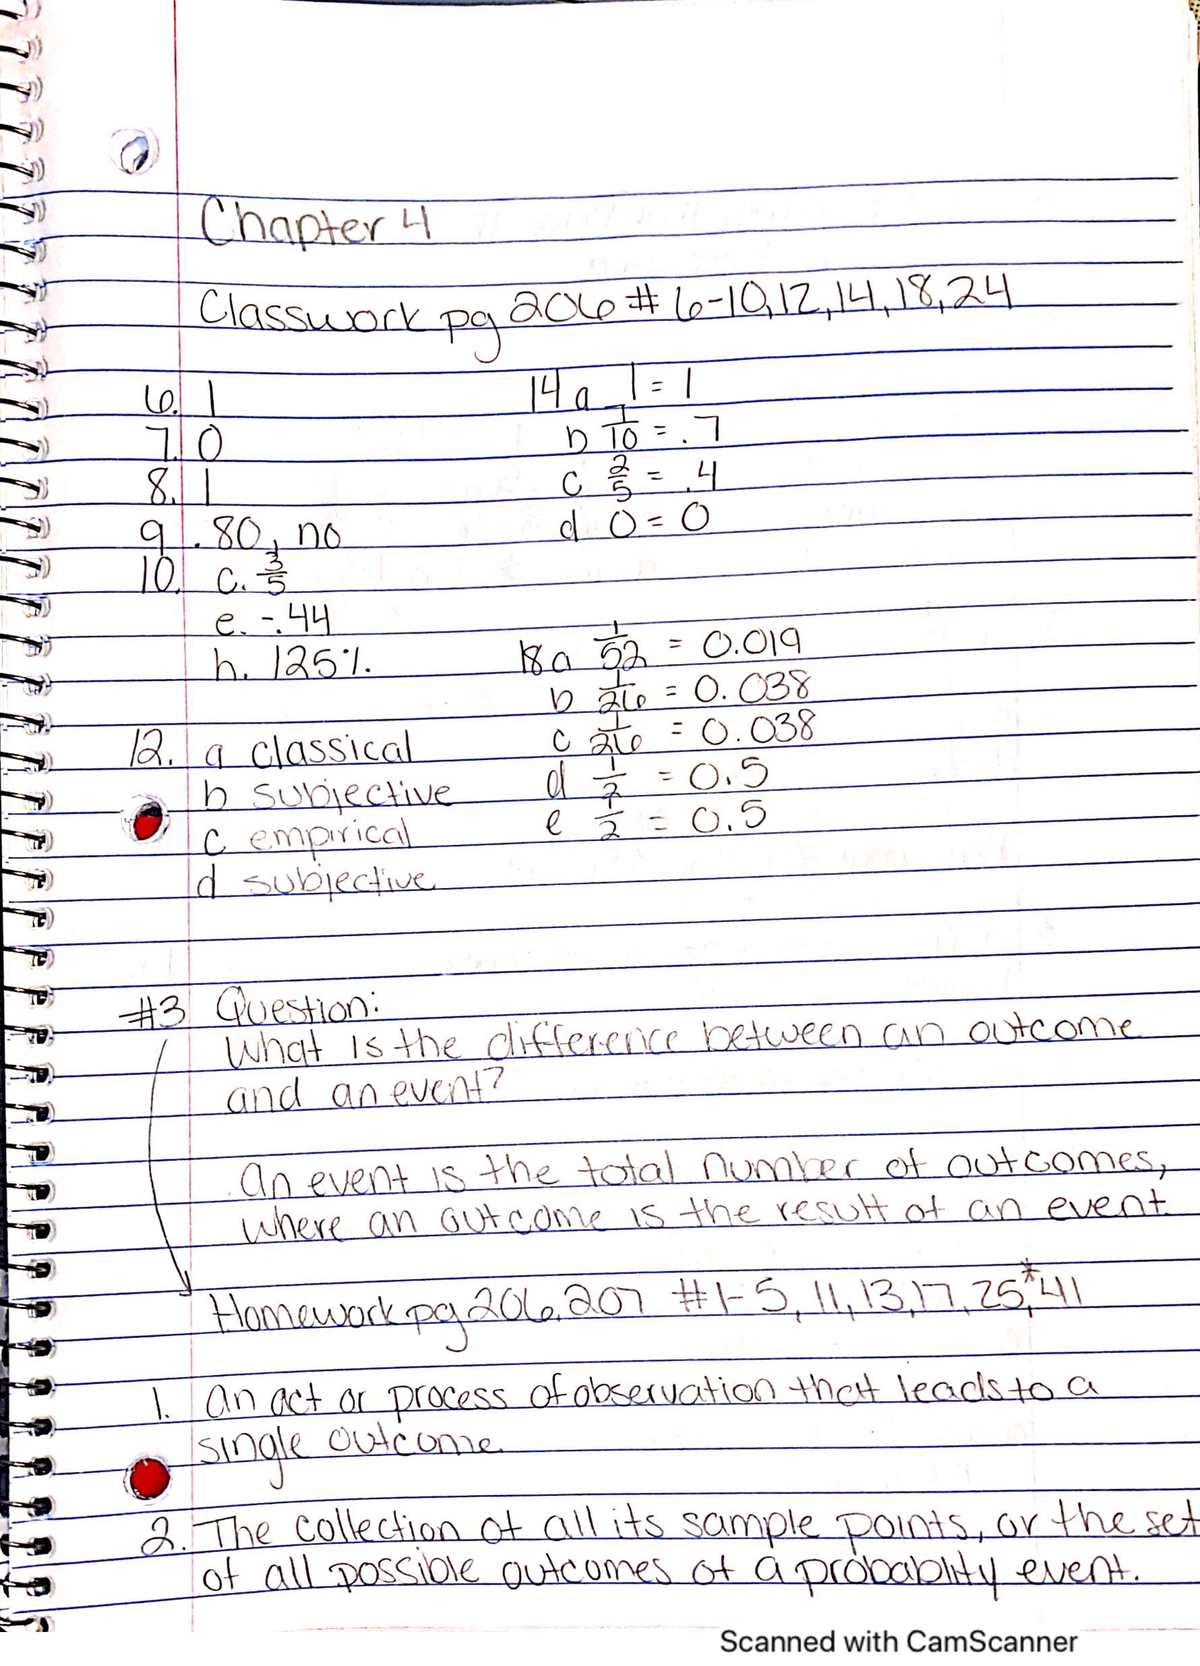 Chapter 4
Classwork pg 206 # 6-10, 12, 14, 18, 24
6. 1
7. 0
8. 1
9. .80, no
10. c. 3/5
e. -.44
h. 125%.
12. a classical
b subjective
c empirical
d subjective
14 a 1 = 1
b 7/10 = .7
c 2/5 = .4
d 0 = 0
18 a 1/52 = 0.019
b 1/26 = 0.038
c 1/26 = 0.038
d 1/2 = 0.5
e 1/2 = 0.5
#3 Question:
What is the difference between an outcome
and an event?
An event is the total number of outcomes,
where an outcome is the result of an event
Homework pg 206, 207 #1-5, 11, 13, 17, 25,* 41
1. An act or process of observation that leads to a
single outcome.
2. The collection of all its sample points, or the set
of all possible outcomes of a probablity event.
Scanned with CamScanner